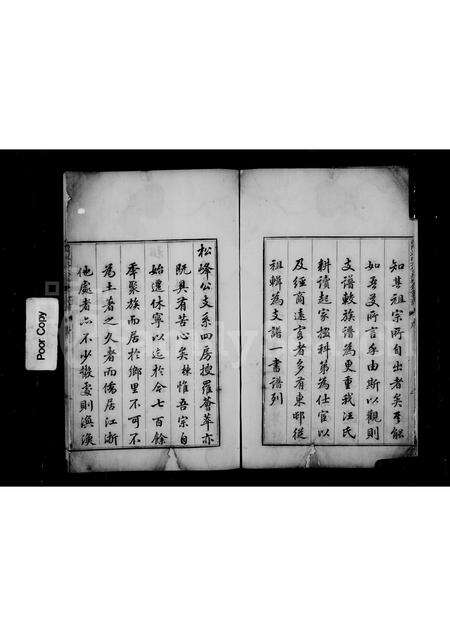 知其祖宗所自出者矣至能
如吾叟所言孚由斯以觀則
支譜較族譜為更重我汪氏
耕讀起家掇科第為仕宦以
及經商遠客者多有東邨從
祖輯為支譜一書譜列
松峰公支系四房搜羅薈萃亦
既具有苦心矣棟惟吾宗自
始遷休寧以迄於今七百餘
年聚族而居於鄉里不可不
為土著之久者而僑居江浙
他處者亦不少散處則渙渙
Poor Copy